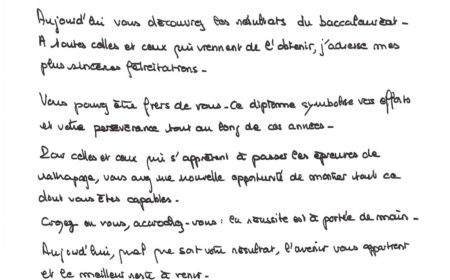 Aujourd'hui vous découvrez les résultats du baccalauréat.
A toutes celles et ceux qui viennent de l'obtenir, j'adresse mes
plus sincères félicitations.
Vous pouvez être fiers de vous. Ce diplôme symbolise vos efforts
et votre persévérance tout au long de ces années.
Pour celles et ceux qui s'apprêtent à passer les épreuves de
rattrapage, vous avez une nouvelle opportunité de montrer tout ce
dont vous êtes capables.
Croyez en vous, accrochez-vous : la réussite est à portée de main.
Aujourd'hui, quel que soit votre résultat, l'avenir vous appartient
et le meilleur reste à venir.